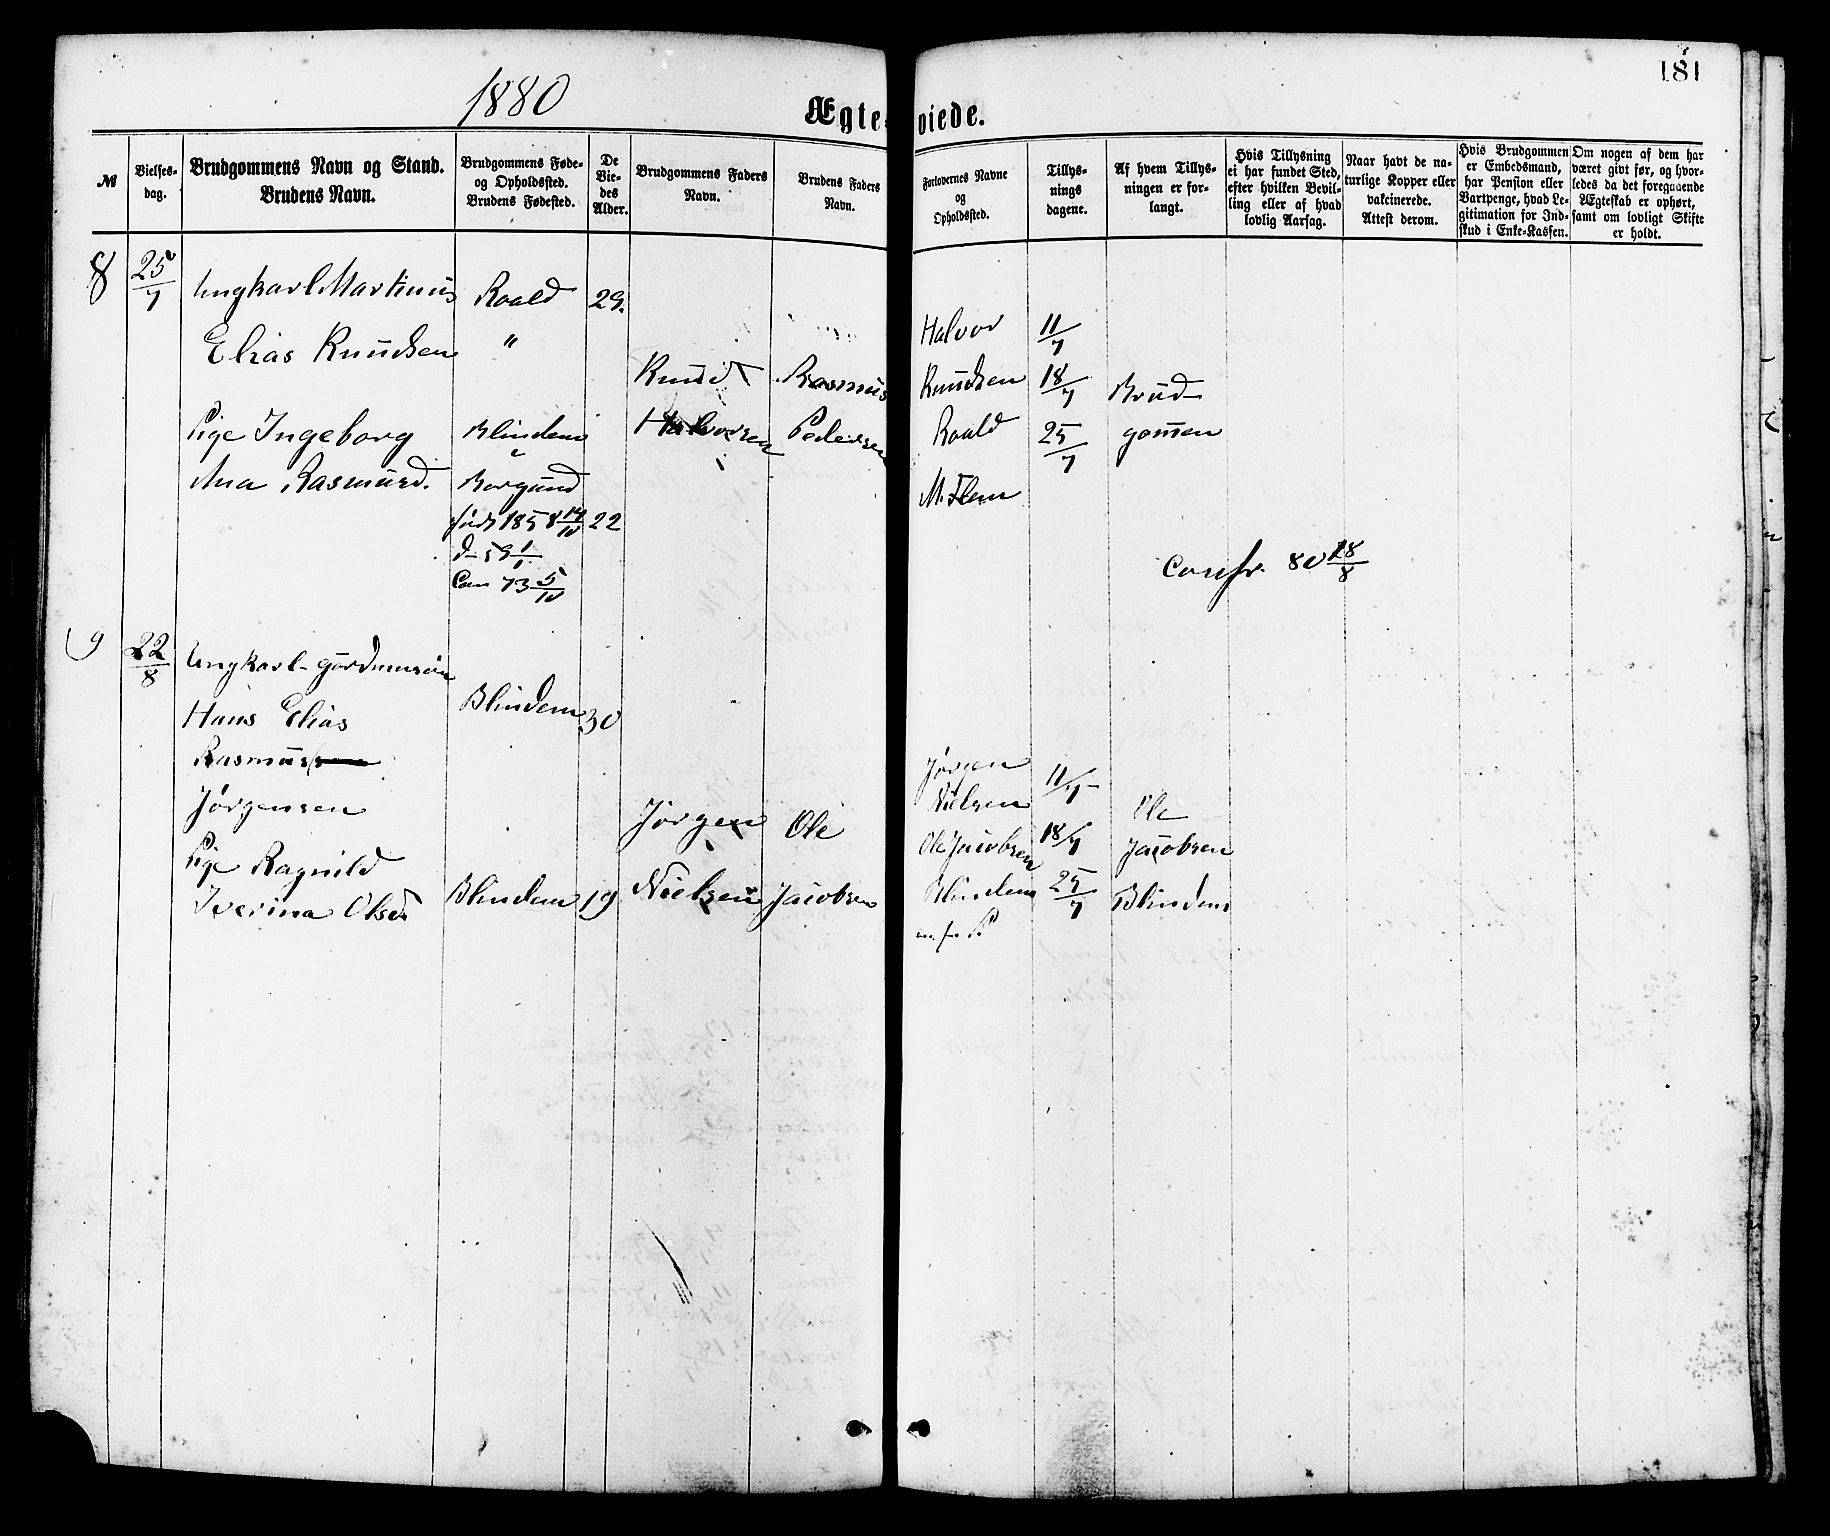 1880
181
Ægte-viede.
№
Vielses-
dag.
Brudgommens Navn og Stand.
Brudens Navn.
Brudgommens Føde-
og Opholdssted.
Brudens Fødested.
De
Vie-
des
Alder.
Brudgommens Faders
Navn.
Brudens Faders
Navn.
Forlovernes Navne
og
Opholdssted.
Tillys-
nings
dagene.
Af hvem Tillys-
ningen er for-
langt.
Hvis Tillysning
ei har fundet Sted,
efter hvilken Bevil-
ling eller af hvad
lovlig Aarsag.
Naar havt de na-
turlige Kopper eller
vakcinerede.
Attest derom.
Hvis Brudgommen
er Embedsmand,
har Pension eller
Vartpenge, hvad Le-
gitimation for Ind-
skud i Enke-Kassen.
Om nogen af dem har
været givt før, og hvor-
ledes da det foregaaende
Ægteskab er ophørt,
samt om lovligt Skifte
er holdt.
8 25/7 Ungkarl Martinus Roald 29.
Elias Knudsen "
Pige Ingeborg Blindem
Ana Rasmusd. Borgund
født 1858 14/10 22
d- 59 1/1
Con 73 5/10
Knud
Halvorsen
Rasmus
Pedersen
Halvor 11/7
Knudsen 18/7 Brud-
Roald 25/7 gomen
M. Flem
Confr. 80 28/8
9 22/8 Ungkarl- gårdmansøn
Hans Elias Blindem 30
Rasmussen
Jørgensen
Pige Ragnild
Iverina Olsd. Blindem 19
Jørgen
Nielsen
Ole
Jacobsen
Jørgen 11/7
Nielsen Ole
Ole Jacobsen 18/7 Jacobsen
Blindem 25/7 Blindem